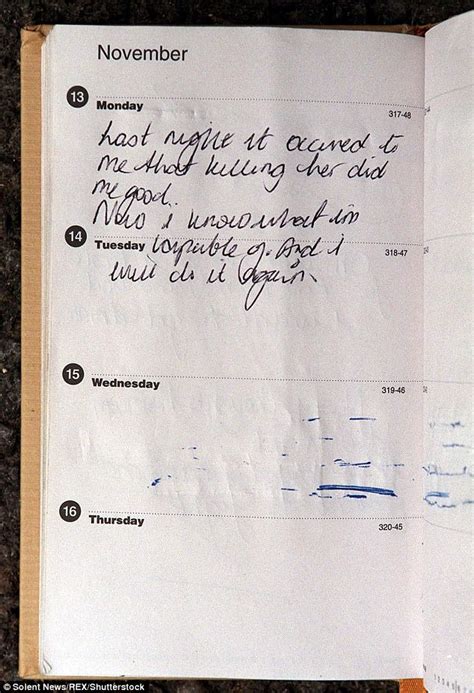 November
13
Monday
317-48
Last night it occured to
me that killing her did
me good..
Now i know what im
14
Tuesday capable of. And i
318-47
will do it again.
15
Wednesday
319-46
16
Thursday
320-45
© Solent News/REX/Shutterstock